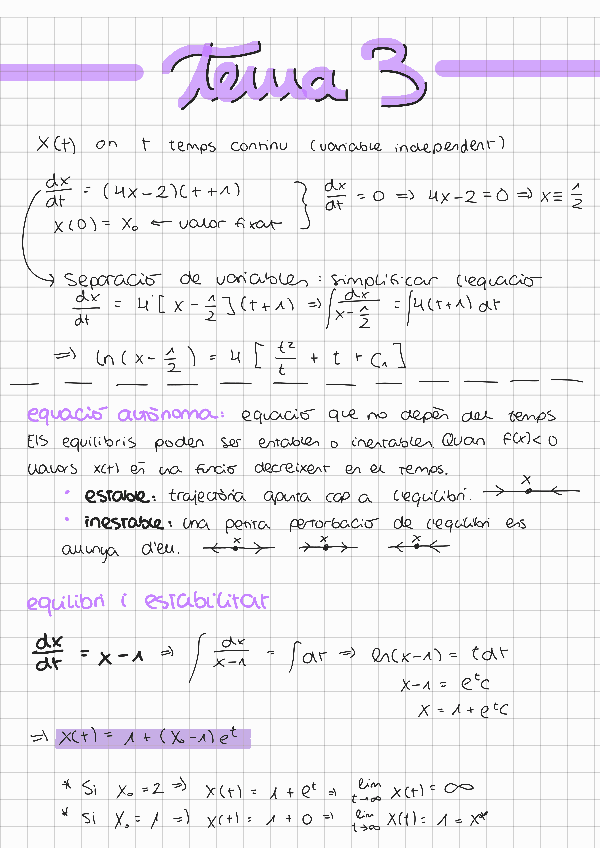 Tema 3
X(t) on t temps continu (variable independent)
dx/dt = (4x-2)(t+1) } dx/dt = 0 => 4x-2=0 => x≡ 1/2
x(0) = X₀ ← valor fixat
→ Separació de variables: simplificar l'equació
dx/dt = 4[x - 1/2](t+1) => ∫ dx/(x - 1/2) = ∫4(t+1) dt
=> ln(x - 1/2) = 4[t²/t + t + C₁]
equació autònoma: equació que no depèn del temps
Els equilibris poden ser estables o inestables Quan f(x)<0
valors x(t) és una funció decreixent en el temps.
• estable: trajectòria apunta cap a l'equilibri. x
• inestable: una petita pertorbació de l'equilibri ens
allunya d'ell. x x x
equilibri i estabilitat
dx/dt = x-1 => ∫ dx/(x-1) = ∫dt => ln(x-1) = t dt
x-1 = eᵗc
x = 1+eᵗc
=> x(t) = 1 + (X₀-1)eᵗ
* Si X₀=2 => X(t) = 1 + eᵗ => lim t→∞ X(t) = ∞
* Si X₀=1 => X(t) = 1 + 0 => lim t→∞ X(t) = 1 = X*